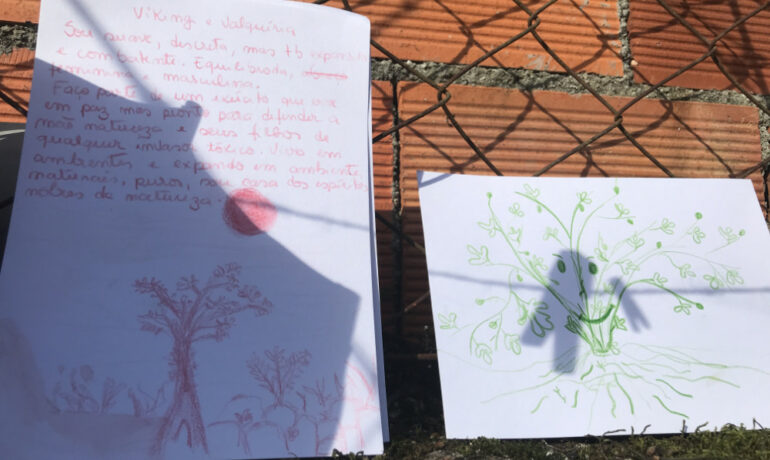 Viking e Valquíria
Sou suave, discreta, mas tb expansiva
e combatente. Equilibrada,
feminina e masculina.
Faço parte de um exército que vive
em paz mas pronto para difender a
mãe natureza e seus filhos de
qualquer invasor tóxico. Vivo em
ambientes e expando em ambientes
naturais, puros, sou casa dos espíritos
nobres da natureza.